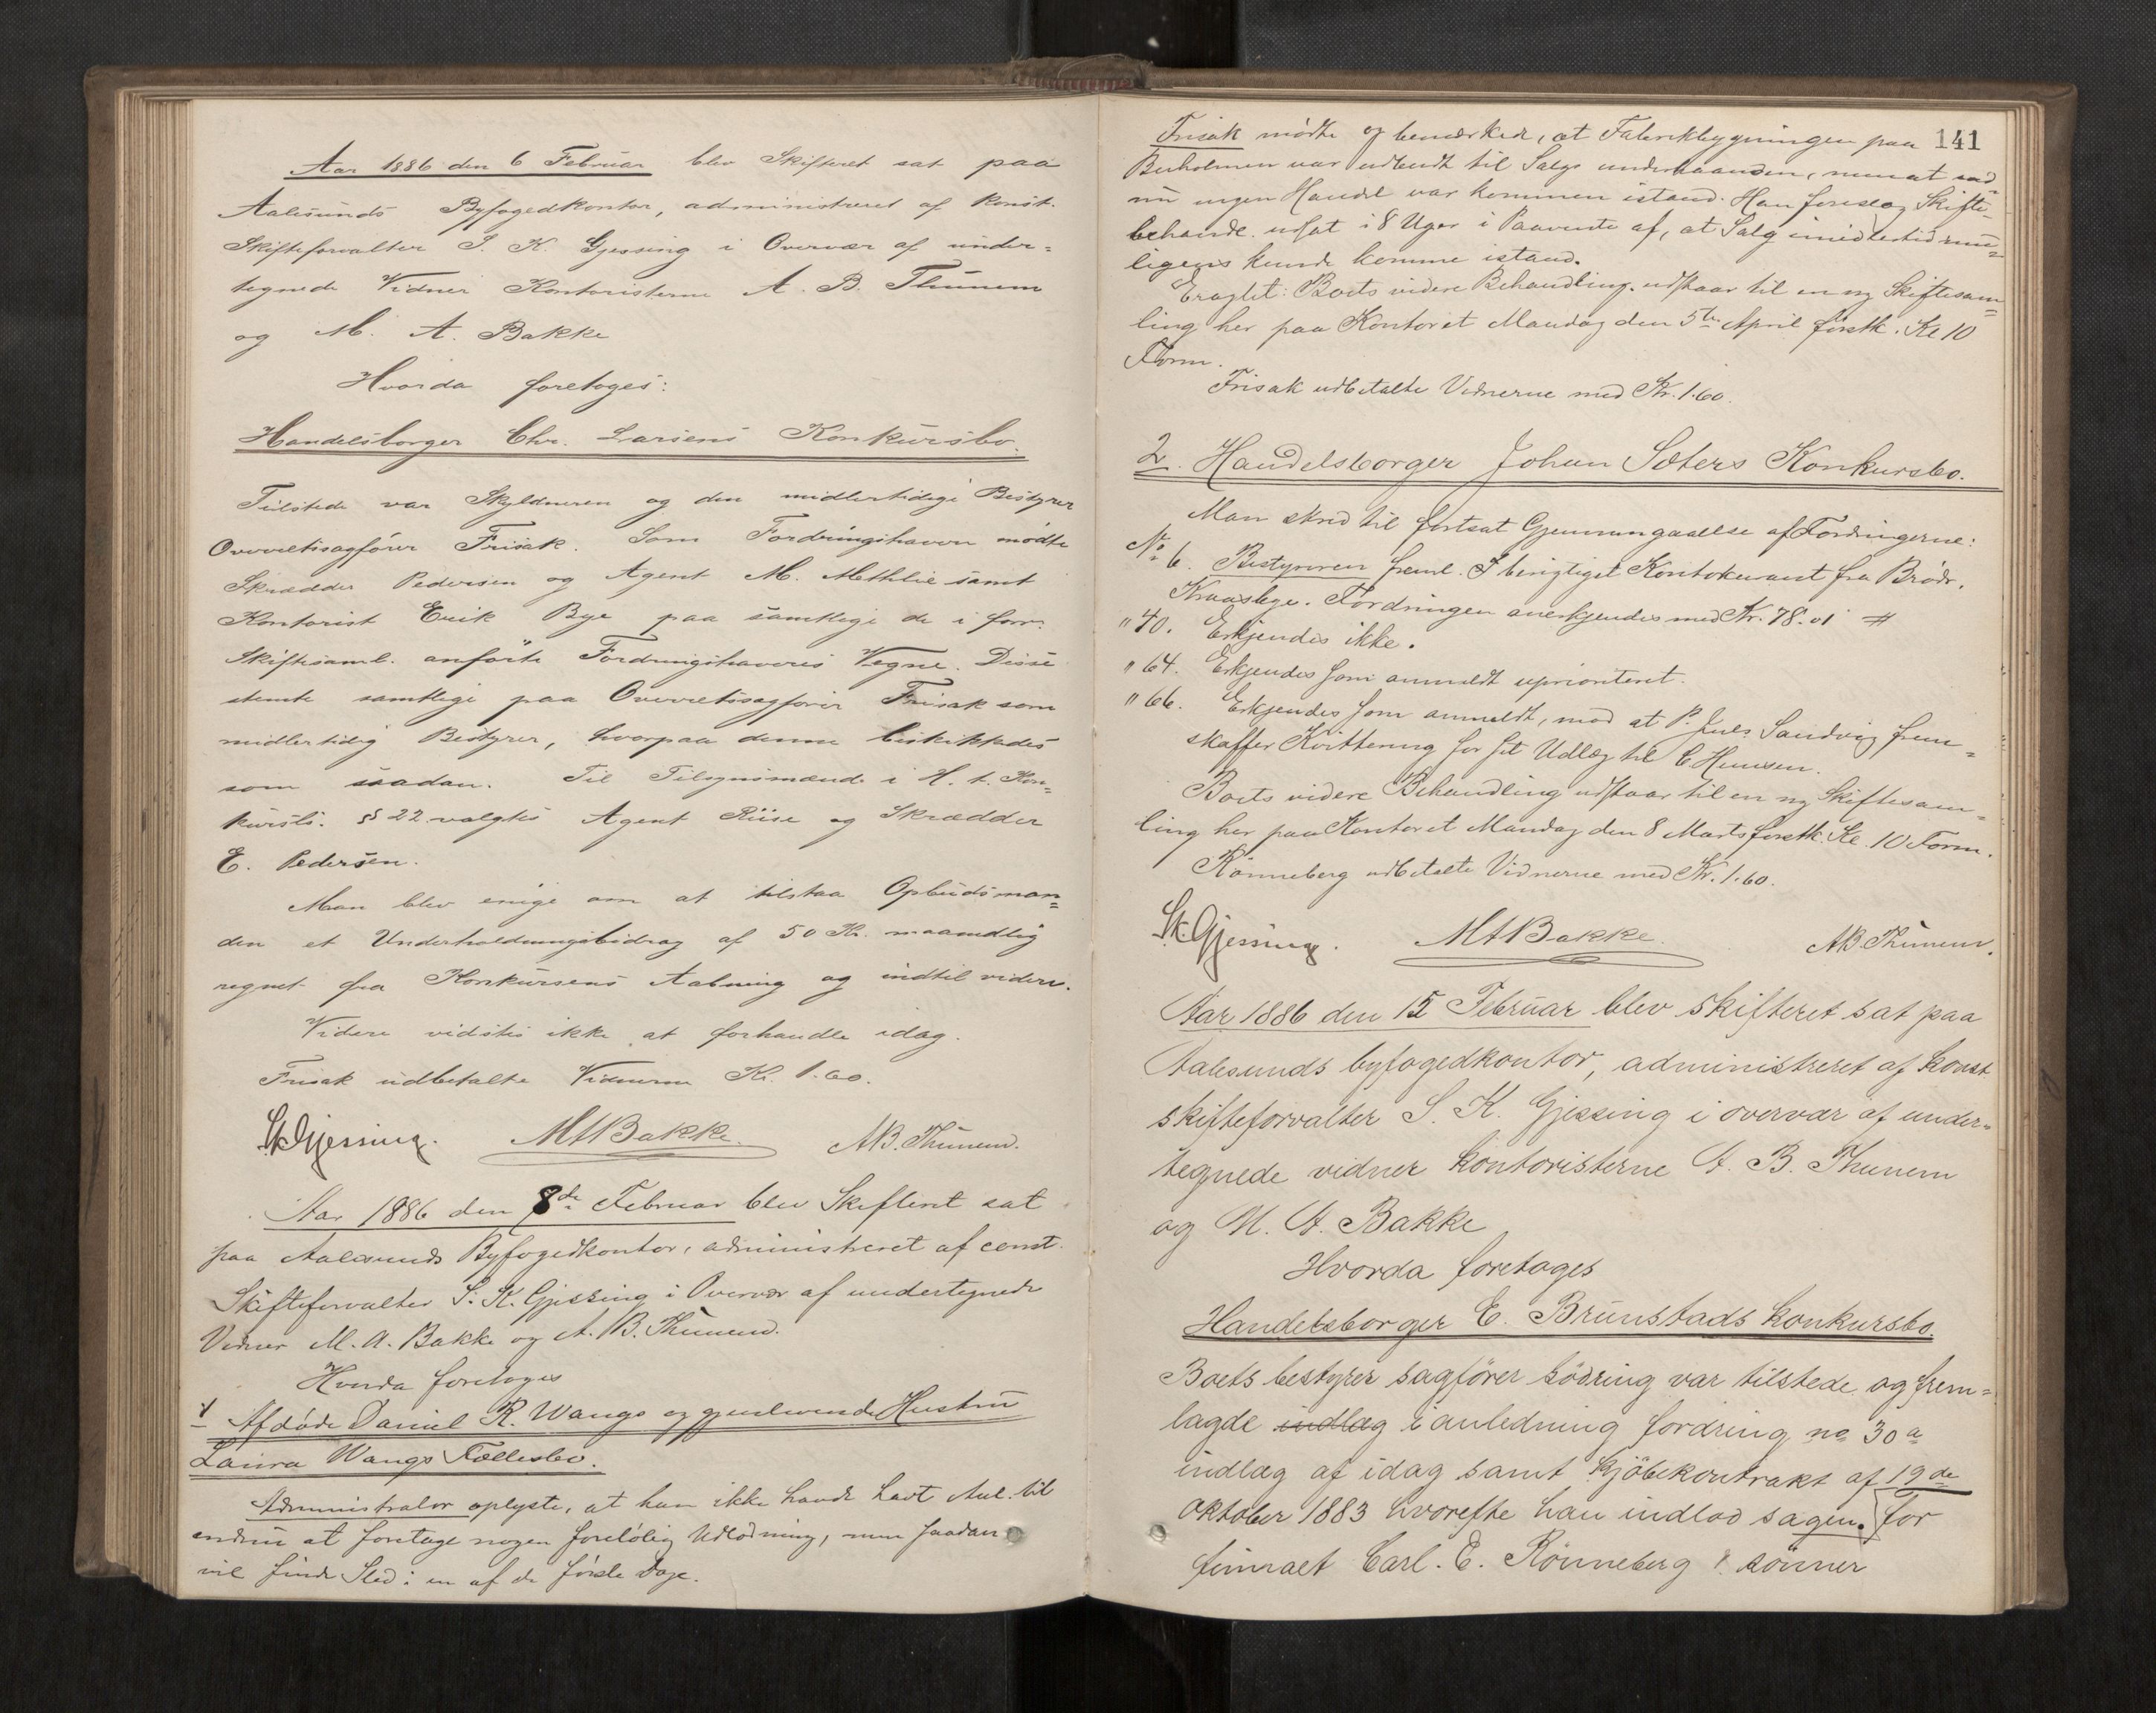 Aar 1886 den 6 Februar blev Skifteret sat paa
Aalesunds Byfogedkontor, administreret af Konst.
Skifteforvalter S. K. Gjessing i Overvær af under=
tegnede Vidner Kontoristerne A. B. Thunem
og M. A. Bakke
Hvorda foretoges:
Handelsborger Chr. Larsens Konkursbo.
Tilstede var Skyldneren og den midlertidige Bestyrer
Overretssagfører Frisak. Som Fordringshavere mødte
Skrædder Pedersen og Agent M. Methlie samt
Kontorist Erik Bye paa samtlige de i forr.
Skiftesaml. anførte Fordringshaveres Vegne. Disse
stemte samtlige paa Overretssagfører Frisak som
midlertidig Bestyrer, hvorpaa denne beskikkedes
som saadan. Til Tilsynsmænd i H. t. Kon=
kursl. § 22 valgtes Agent Riise og Skrædder
E. Pedersen.
Man blev enige om at tilstaa Opbudsman=
den et Underholdningsbidrag af 50 Kr. maanedlig
regnet fra Konkursens Aabning og indtil videre.
Videre vidstes ikke at forhandle idag.
Frisak udbetalte Vidnerne Kr. 1.60.
S.K.Gjessing. MABakke. A.B. Thunem.
Aar 1886 den 8de Februar blev Skifteret sat
paa Aalesunds Byfogedkontor, administreret af const.
Skifteforvalter S. K. Gjessing i Overvær af undertegnede
Vidner M. A. Bakke og A. B. Thunem.
Hvorda foretoges
1 Afdøde Daniel R. Wangs og gjenlevende Hustru
Laura Wangs Fællesbo.
Administrator oplyste, at han ikke havde havt Anl. til
endnu at foretage nogen foreløbig Udlodning, men saadan
vil finde Sted i en af de første Dage.
141
Frisak mødte og bemærkede, at Fabrikbygningen paa
Buholmen var udbudt til Salgs underhaanden, men at end=
nu ingen Handel var kommen istand. Han foreslog Skifte=
behandl. udsat i 8 Uger i Paavente af, at Salg imidlertid mu=
ligens kunde komme istand.
Eragtet: Boets videre Behandling udstaar til en ny Skiftesam=
ling her paa Kontoret Mandag den 5te April førstk. Kl 10
Form.
Frisak udbetalte Vidnerne med Kr. 1.60.
2. Handelsborger Johan Sæters Konkursbo.
Man skred til fortsat Gjennemgaaelse af Fordringerne:
No 6. Bestyreren freml. I berigtiget Kontokurant fra Brødr.
Fordringen anerkjendes med Kr. 78.01
" 40. Erkjendes ikke.
" 64. Erkjendes som anmeldt uprioriteret.
" 66. Erkjendes som anmeldt, mod at P. Jul. Sandvig frem=
skaffer Kvittering for sit Udlæg til C.
Boets videre Behandling udstaar til en ny Skiftesam=
ling her paa Kontoret Mandag den 8 Marts førstk. Kl. 10 Form.
Rønneberg udbetalte Vidnerne med Kr. 1.60.
S.K.Gjessing. MABakke. A.B. Thunem.
Aar 1886 den 15 Februar blev skifteret sat paa
Aalesunds byfogedkontor, administreret af konst
skifteforvalter S. K. Gjessing i overvær af under=
tegnede vidner kontoristerne A. B. Thunem
og M. A. Bakke
Hvorda foretoges
Handelsborger E. Brunstads konkursbo.
Boets bestyrer sagfører Sødring var tilstede og frem=
lagde indlæg i anledning fordring no 30 a
indlæg af idag samt kjøbekontrakt af 19de
oktober 1883 hvorefte han indlod sagen. For
firmaet Carl. E. Rønneberg & sønner